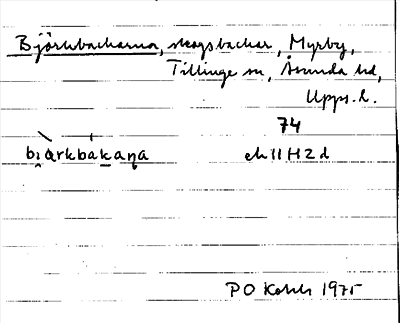 Björkbackarna, skogsbackar, Myrby,
Tillinge sn, Åsunda hd,
Upps. l.
74
bi̯ àrkbákana ek 11 H 2 d
PO 1975